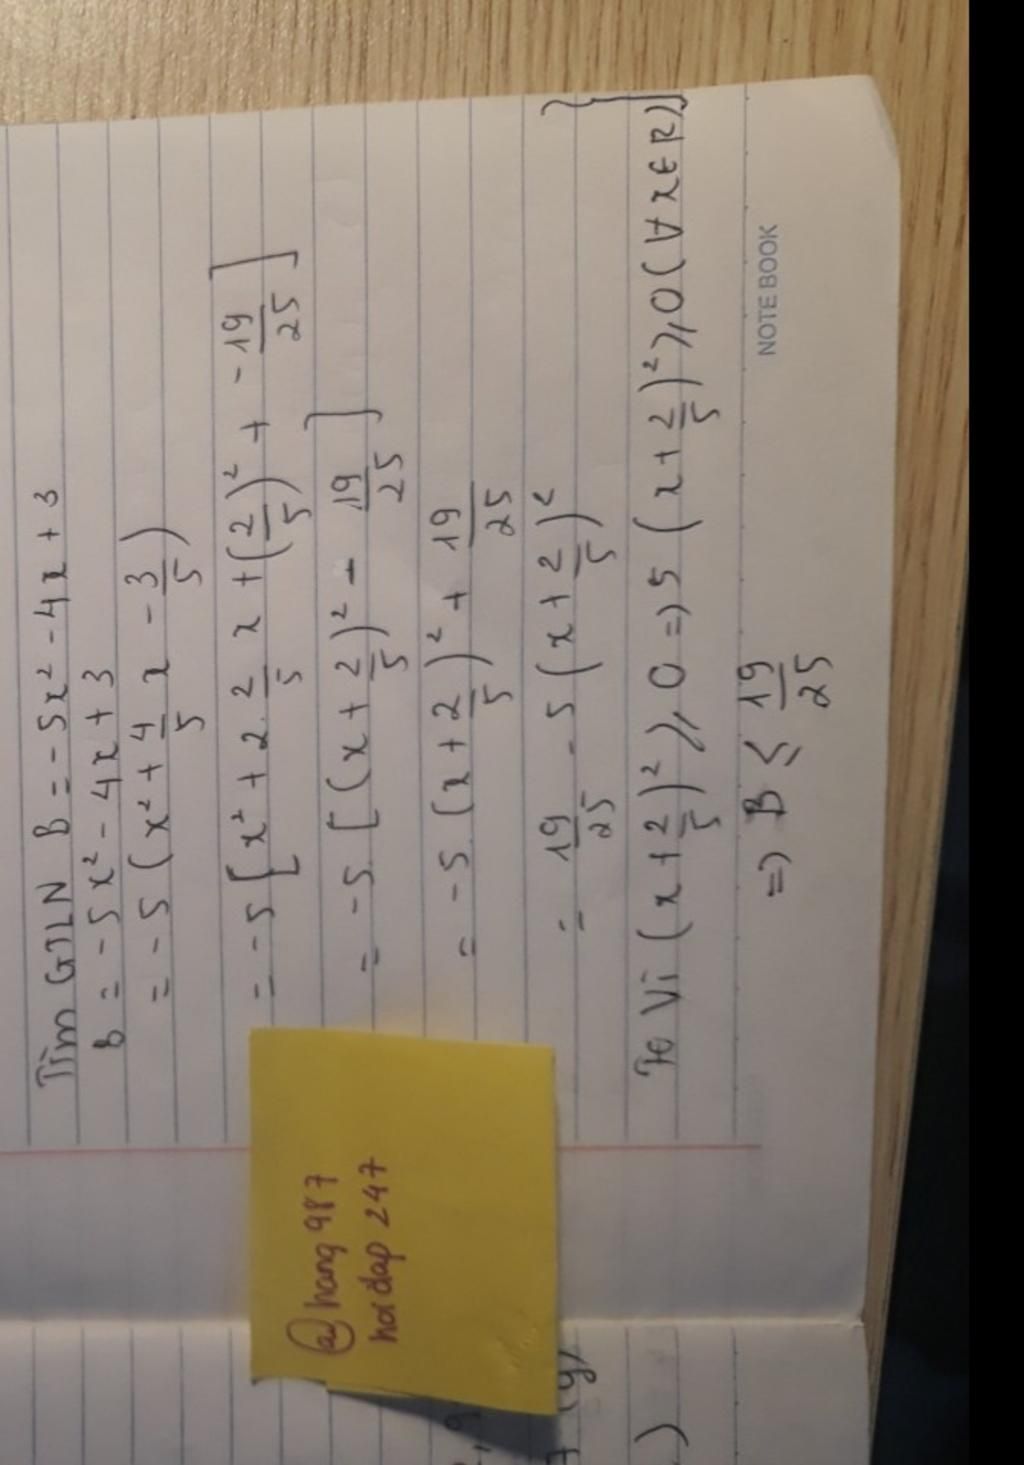 Tìm GTLN B = -5x² - 4x + 3
B = -5x² - 4x + 3
= -5 (x² + 4/5 x - 3/5)
= -5 [x² + 2. 2/5 x + (2/5)² + -19/25]
= -5. [(x + 2/5)² - 19/25]
= -5. (x + 2/5)² + 19/25
= 19/25 - 5 (x + 2/5)²
Vì (x + 2/5)² ≥ 0 => 5 (x + 2/5)² ≥ 0 (∀ x ∈ R)
=> B ≤ 19/25
NOTE BOOK
@hang987
hoidap 247